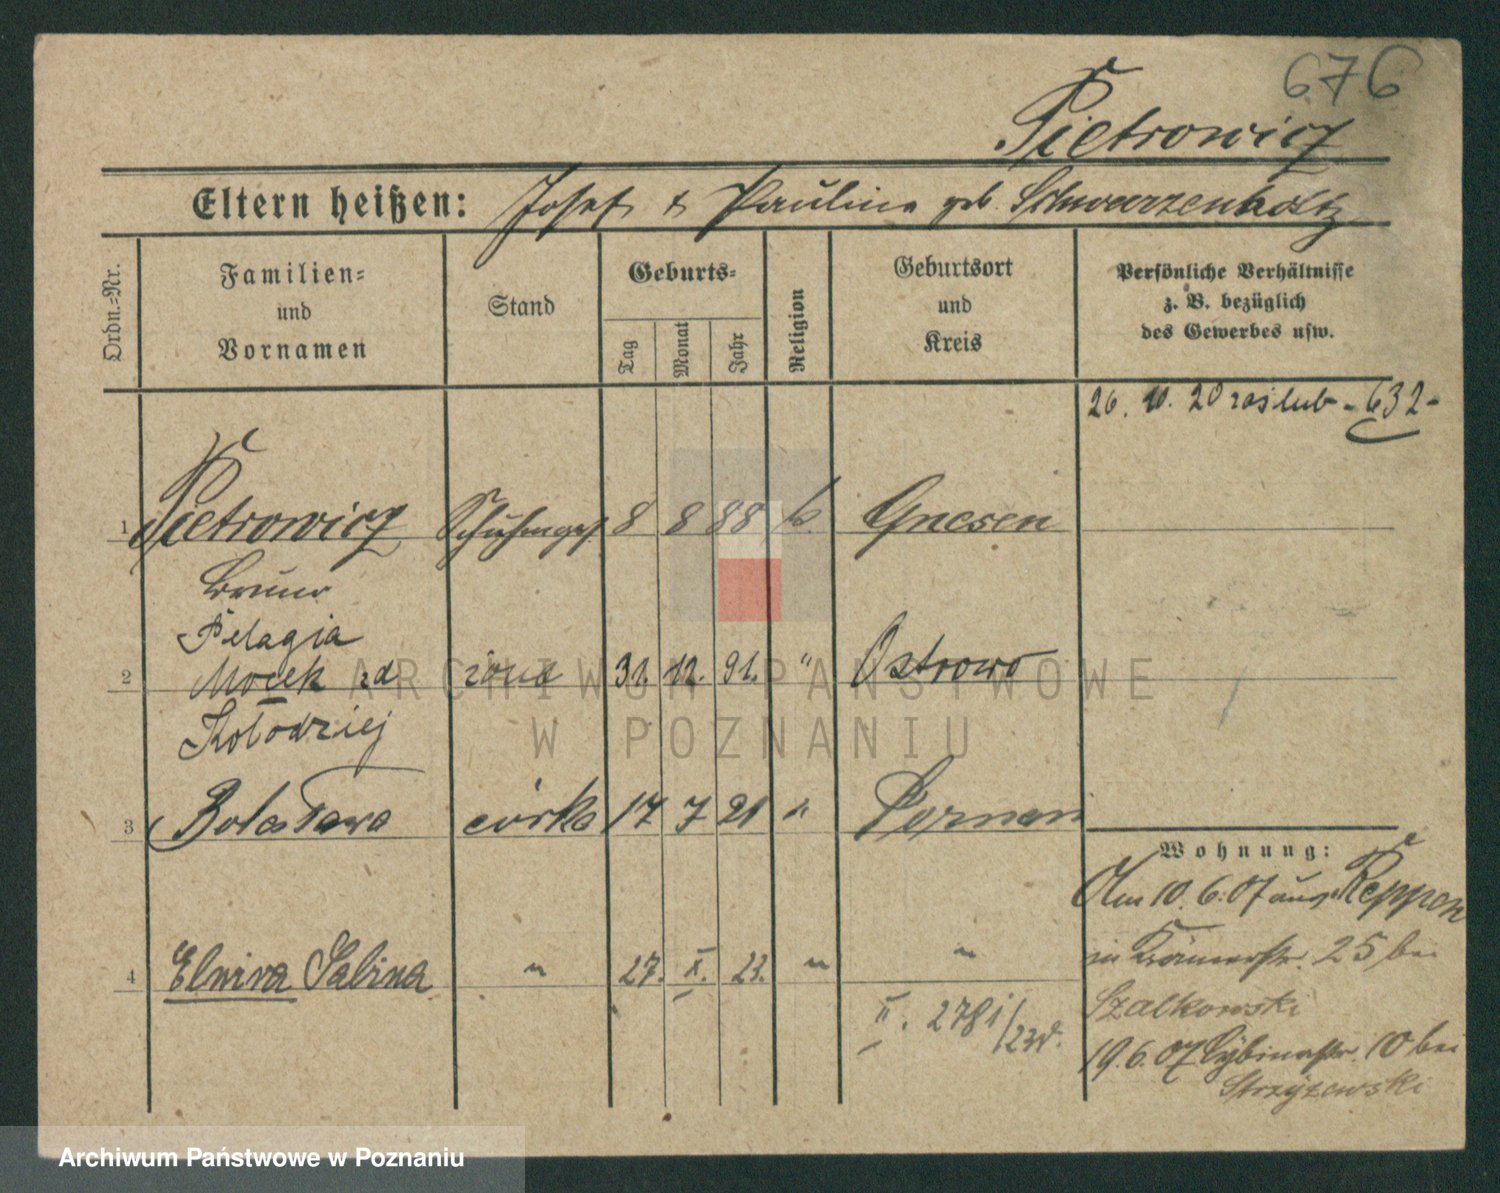 676
Pietrowicz
Eltern heißen: Josef & Pauline geb. Schwarzenholtz
Ordn.-Nr.
Familien-
und
Vornamen
Stand
Geburts-
Tag
Monat
Jahr
Religion
Geburtsort
und
Kreis
Persönliche Verhältnisse
z. B. bezüglich
des Gewerbes usw.
26. 10. 20 zaślub - 632 -
1 Pietrowicz Schuhmgs. 8 8 88 k. Gnesen
Bruno
Pelagia
2 Mocek zd żona 31. 12. 91. " Ostrowo
Kołodziej
3 Bolesława córka 17 7 21 " Poznań
Wohnung:
Am 10. 6. 07 aus Reppen
in Krämerstr. 25 bei
4 Elwira Sabina " 27. X. 23. " "
Szalkowski
II. 2781/23d.
19. 6. 07 Cybinastr. 10 bei
Strzyżewski
ARCHIWUM PAŃSTWOWE
W POZNANIU
Archiwum Państwowe w Poznaniu